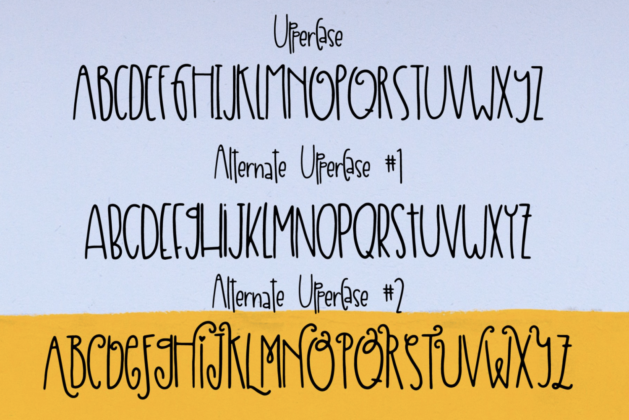 Uppercase
ABCDEFGHIJKLMNOPQRSTUVWXYZ
Alternate Uppercase #1
ABCDEFgHiJKLMNOPQRStUVWXYZ
Alternate Uppercase #2
ABCDeFgHiJKLMNOPQRSTUVWXYZ